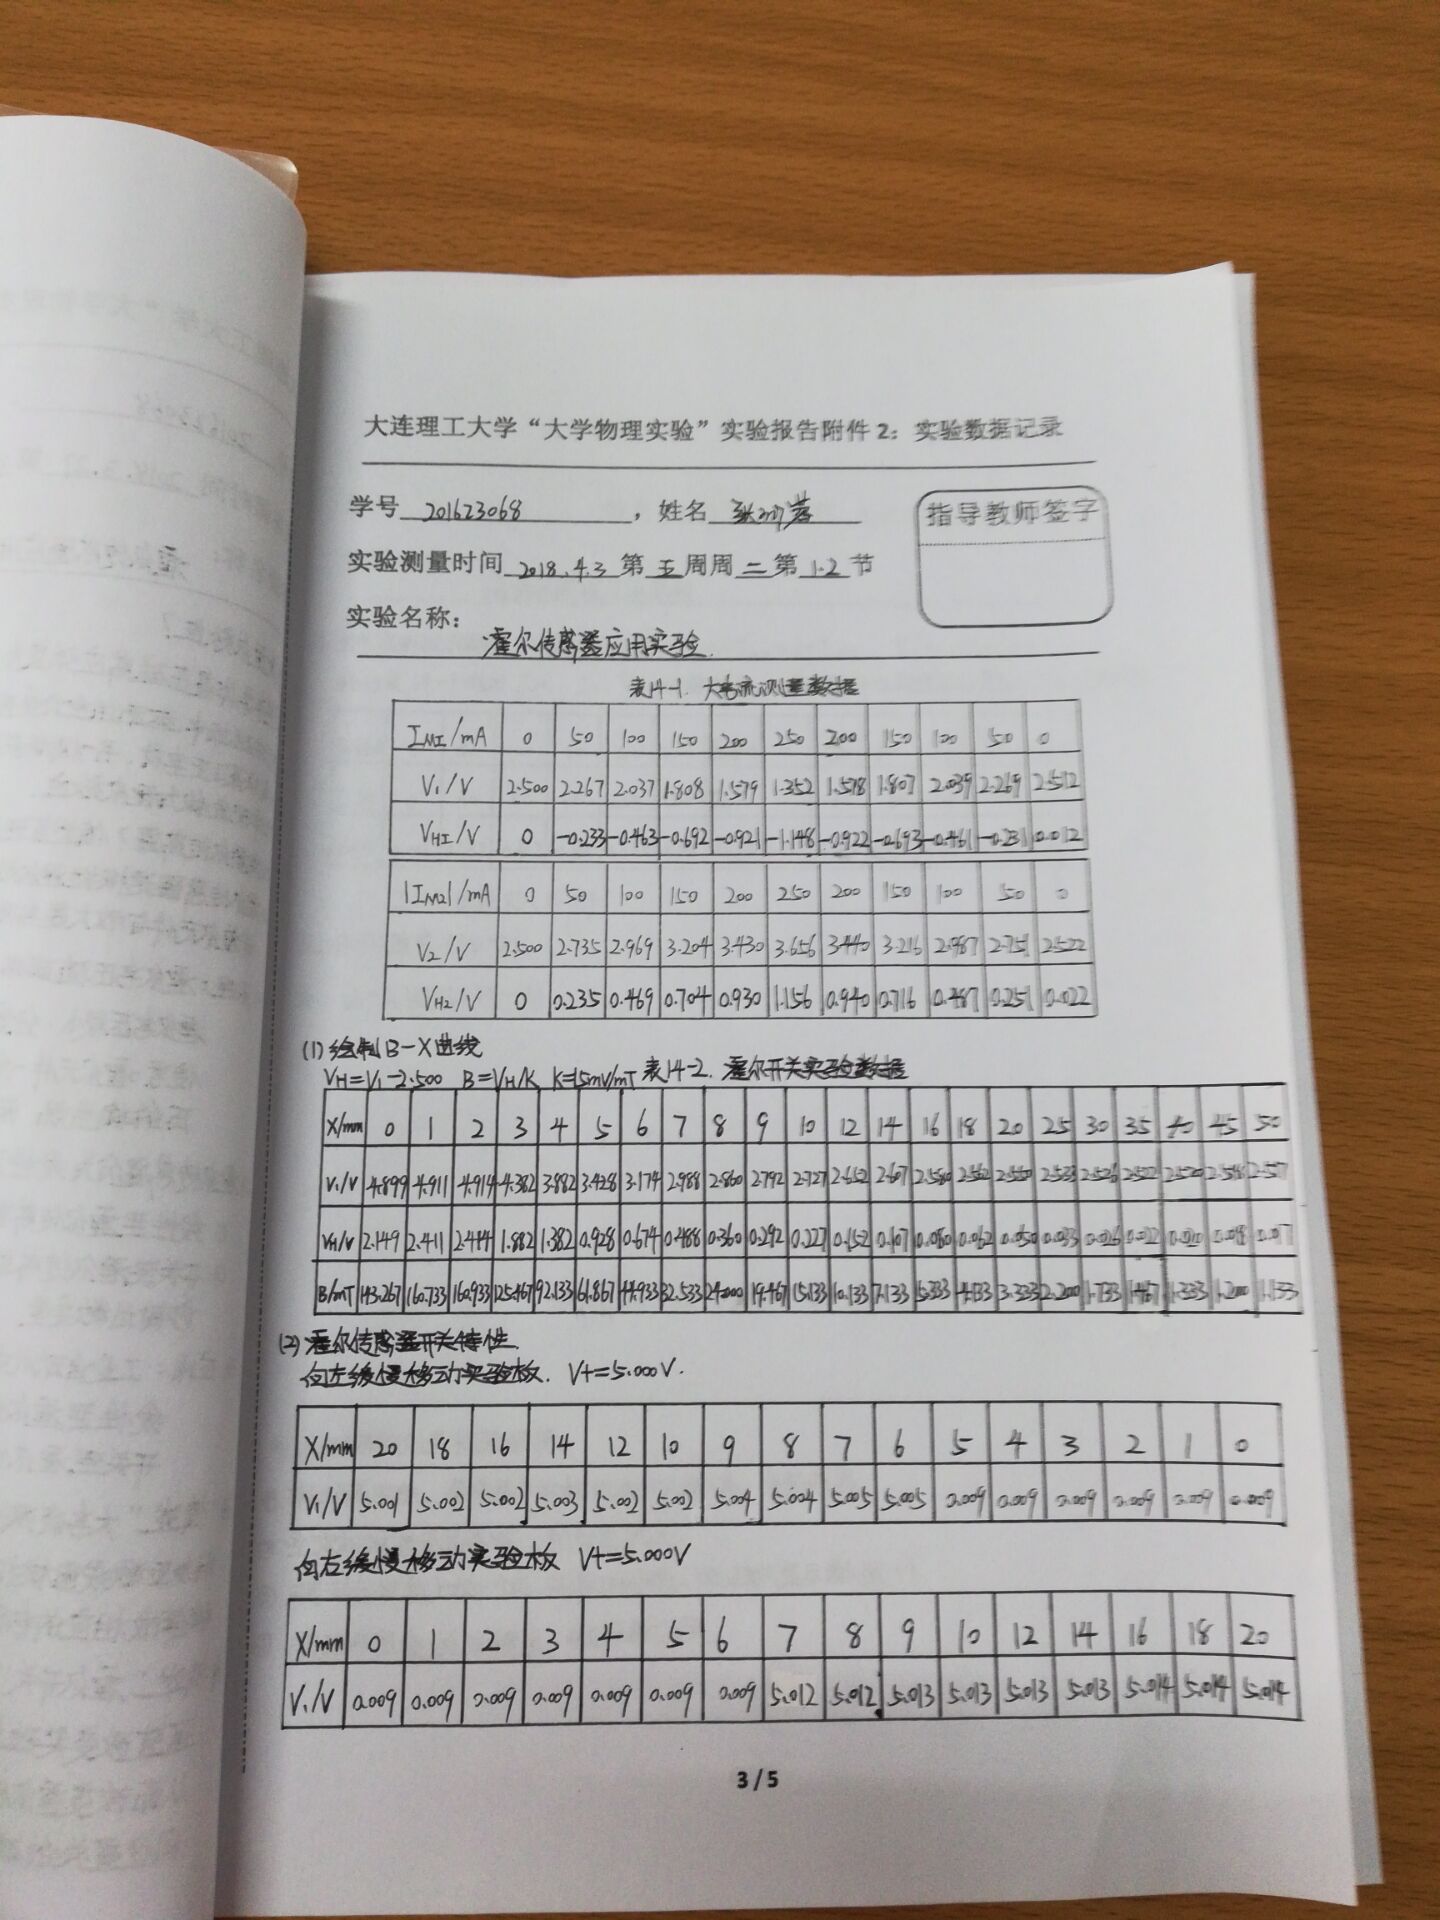 大连理工大学“大学物理实验”实验报告附件2：实验数据记录
学号 201623068，姓名 张
指导教师签字
实验测量时间 2018.4.3 第 五 周周 二 第 1.2 节
实验名称：
霍尔传感器应用实验.
表14-1. 大电流测量数据
IM1/mA 0 50 100 150 200 250 200 150 100 50 0
V1/V 2.500 2.267 2.037 1.808 1.579 1.352 1.578 1.807 2.039 2.269 2.512
VH1/V 0 -0.233 -0.463 -0.692 -0.921 -1.148 -0.922 -0.693 -0.461 -0.231 0.012
|IM2|/mA 0 50 100 150 200 250 200 150 100 50 0
V2/V 2.500 2.735 2.969 3.204 3.430 3.656 3.440 3.216 2.987 2.751 2.522
VH2/V 0 0.235 0.469 0.704 0.930 1.156 0.940 0.716 0.487 0.251 0.022
(1) 绘制B-X曲线
VH=V1-2.500 B=VH/K K=15mV/mT 表14-2. 霍尔开关实验数据
X/mm 0 1 2 3 4 5 6 7 8 9 10 12 14 16 18 20 25 30 35 40 45 50
V1/V 4.899 4.911 4.914 4.382 3.882 3.428 3.174 2.988 2.860 2.792 2.727 2.652 2.607 2.580 2.562 2.550 2.533 2.526 2.522 2.520 2.518 2.517
VH/V 2.149 2.411 2.414 1.882 1.382 0.928 0.674 0.488 0.360 0.292 0.227 0.152 0.107 0.080 0.062 0.050 0.033 0.026 0.022 0.020 0.018 0.017
B/mT 143.267 160.733 160.933 125.467 92.133 61.867 44.933 32.533 24.000 19.467 15.133 10.133 7.133 5.333 4.133 3.333 2.200 1.733 1.467 1.333 1.200 1.133
(2) 霍尔传感器开关特性.
向左缓慢移动实验板. V+=5.000V.
X/mm 20 18 16 14 12 10 9 8 7 6 5 4 3 2 1 0
V1/V 5.001 5.002 5.002 5.003 5.002 5.002 5.004 5.004 5.005 5.005 0.009 0.009 0.009 0.009 0.009 0.009
向左缓慢移动实验板 V+=5.000V
X/mm 0 1 2 3 4 5 6 7 8 9 10 12 14 16 18 20
V1/V 0.009 0.009 0.009 0.009 0.009 0.009 0.009 5.012 5.012 5.013 5.013 5.013 5.013 5.014 5.014 5.014
3 / 5